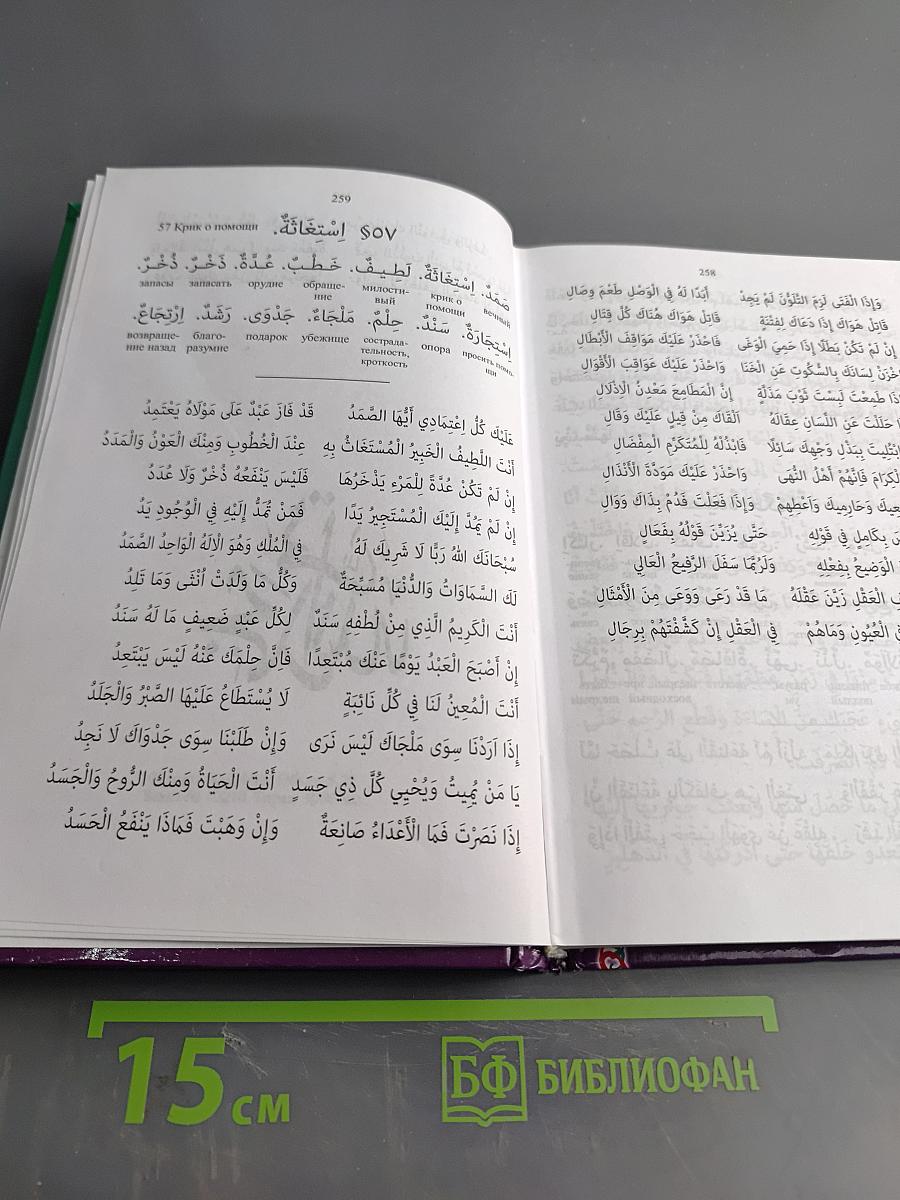 259
57 Крик о помощи §٥٧ اِسْتِغَاثَةٌ.
صَمَدٌ. اِسْتِغَاثَةٌ. لَطِيفٌ. خَطْبٌ. عُدَّةٌ. ذَخْرٌ. ذُخْرٌ.
запасы запасать орудие обраще-ние милости-вый крик о помощи вечный
اِسْتِجَارَةٌ. سَنْدٌ. حِلْمٌ. مَلْجَاءٌ. جَدْوَى. رَشَدٌ. اِرْتِجَاعٌ.
возвраще-ние назад благо-разумие подарок убежище сострада-тельность, кроткость опора просить помо-щи
عَلَيْكَ كُلُّ اِعْتِمَادِي أَيُّهَا الصَّمَدُ قَدْ فَازَ عَبْدٌ عَلَى مَوْلَاهُ يَعْتَمِدُ
أَنْتَ اللَّطِيفُ الْخَبِيرُ الْمُسْتَغَاثُ بِهِ عِنْدَ الْخُطُوبِ وَمِنْكَ الْعَوْنُ وَالْمَدَدُ
إِنْ لَمْ تَكُنْ عُدَّةً لِلْمَرْءِ يَذْخَرُهَا فَلَيْسَ يَنْفَعُهُ ذُخْرٌ وَلَا عُدَدُ
إِنْ لَمْ يَمُدَّ إِلَيْكَ الْمُسْتَجِيرُ يَدًا فَمَنْ تُمَدُّ إِلَيْهِ فِي الْوُجُودِ يَدُ
سُبْحَانَكَ اللهُ رَبًّا لَا شَرِيكَ لَهُ فِي الْمُلْكِ وَهُوَ الْاِلَهُ الْوَاحِدُ الصَّمَدُ
لَكَ السَّمَاوَاتُ وَالدُّنْيَا مُسَبِّحَةٌ وَكُلُّ مَا وَلَدَتْ اُنْثَى وَمَا تَلِدُ
أَنْتَ الْكَرِيمُ الَّذِي مِنْ لُطْفِهِ سَنَدٌ لِكُلِّ عَبْدٍ ضَعِيفٍ مَا لَهُ سَنَدُ
إِنْ أَصْبَحَ الْعَبْدُ يَوْمًا عَنْكَ مُبْتَعِدًا فَاِنَّ حِلْمَكَ عَنْهُ لَيْسَ يَبْتَعِدُ
أَنْتَ الْمُعِينُ لَنَا فِي كُلِّ نَائِبَةٍ لَا يُسْتَطَاعُ عَلَيْهَا الصَّبْرُ وَالْجَلَدُ
إِذَا اَرَدْنَا سِوَى مَلْجَاكَ لَيْسَ نَرَى وَإِنْ طَلَبْنَا سِوَى جَدْوَاكَ لَا نَجِدُ
يَا مَنْ يُمِيتُ وَيُحْيِي كُلَّ ذِي جَسَدٍ أَنْتَ الْحَيَاةُ وَمِنْكَ الرُّوحُ وَالْجَسَدُ
إِذَا نَصَرْتَ فَمَا الْأَعْدَاءُ صَانِعَةٌ وَإِنْ وَهَبْتَ فَمَاذَا يَنْفَعُ الْحَسَدُ
258
وَاِذَا الْفَتَى لَزِمَ التَّلَوُّنَ لَمْ يَجِدْ أَبَدًا لَهُ فِي الْوَصْلِ طَعْمَ وِصَالِ
قَاتِلْ هَوَاكَ إِذَا دَعَاكَ لِفِتْنَةٍ قَاتِلْ هَوَاكَ هُنَاكَ كُلَّ قِتَالِ
إِنْ لَمْ تَكُنْ بَطَلًا إِذَا حَمِيَ الْوَغَى فَاحْذَرْ عَلَيْكَ مَوَاقِفَ الْأَبْطَالِ
اخْزُنْ لِسَانَكَ بِالسُّكُوتِ عَنِ الْخَنَا وَاحْذَرْ عَلَيْكَ عَوَاقِبَ الْأَقْوَالِ
طَمِعْتَ لَبِسْتَ ثَوْبَ مَذَلَّةٍ إِنَّ الْمَطَامِعَ مَعْدِنُ الْاِذْلَالِ
حَلَلْتَ عَنِ اللِّسَانِ عِقَالَهُ اَلْقَاكَ مِنْ قِيلٍ عَلَيْكَ وَقَالِ
ابْتُلِيتَ بِبَذْلِ وَجْهِكَ سَائِلًا فَابْذُلْهُ لِلْمُتَكَرِّمِ الْمِفْضَالِ
الْكِرَامَ فَاِنَّهُمْ أَهْلُ النُّهَى وَاحْذَرْ عَلَيْكَ مَوَدَّةَ الْأَنْذَالِ
وَحَارِمِيكَ وَاَعْطِهِمْ وَإِذَا فَعَلْتَ فَدُمْ بِذَاكَ وَوَالِ
بِكَامِلٍ فِي قَوْلِهِ حَتَّى يُزَيِّنَ قَوْلُهُ بِفَعَالِ
الْوَضِيعُ بِفِعْلِهِ وَلَرُبَّمَا سَفَلَ الرَّفِيعُ الْعَالِي
الْعَقْلِ زَيَّنَ عَقْلَهُ مَا قَدْ رَعَى وَوَعَى مِنَ الْأَمْثَالِ
فِي الْعُيُونِ وَمَاهُمْ فِي الْعَقْلِ إِنْ كَشَّفْتَهُمْ بِرِجَالِ
15 см
БФ БИБЛИОФАН